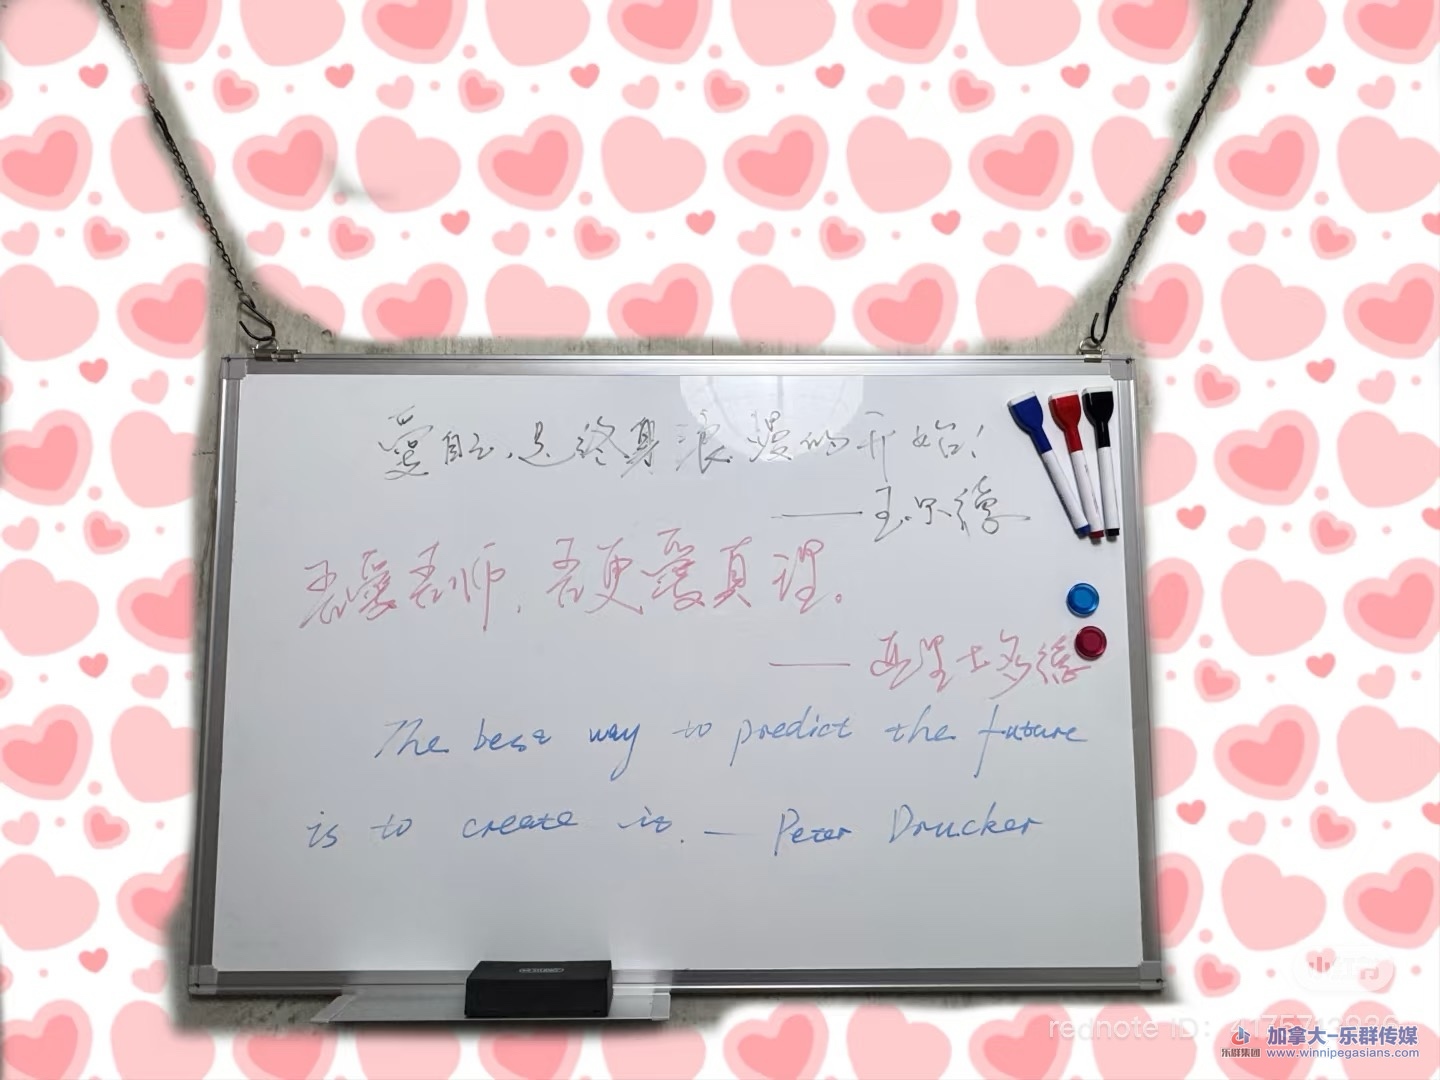 愛自己,是終身浪漫的开始!
——王尔德
吾愛吾师,吾更愛真理。
——亚里士多德
The best way to predict the future
is to create it. — Peter Drucker
小红书
rednote ID:
乐群集团
加拿大-乐群传媒
www.winnipegasians.com